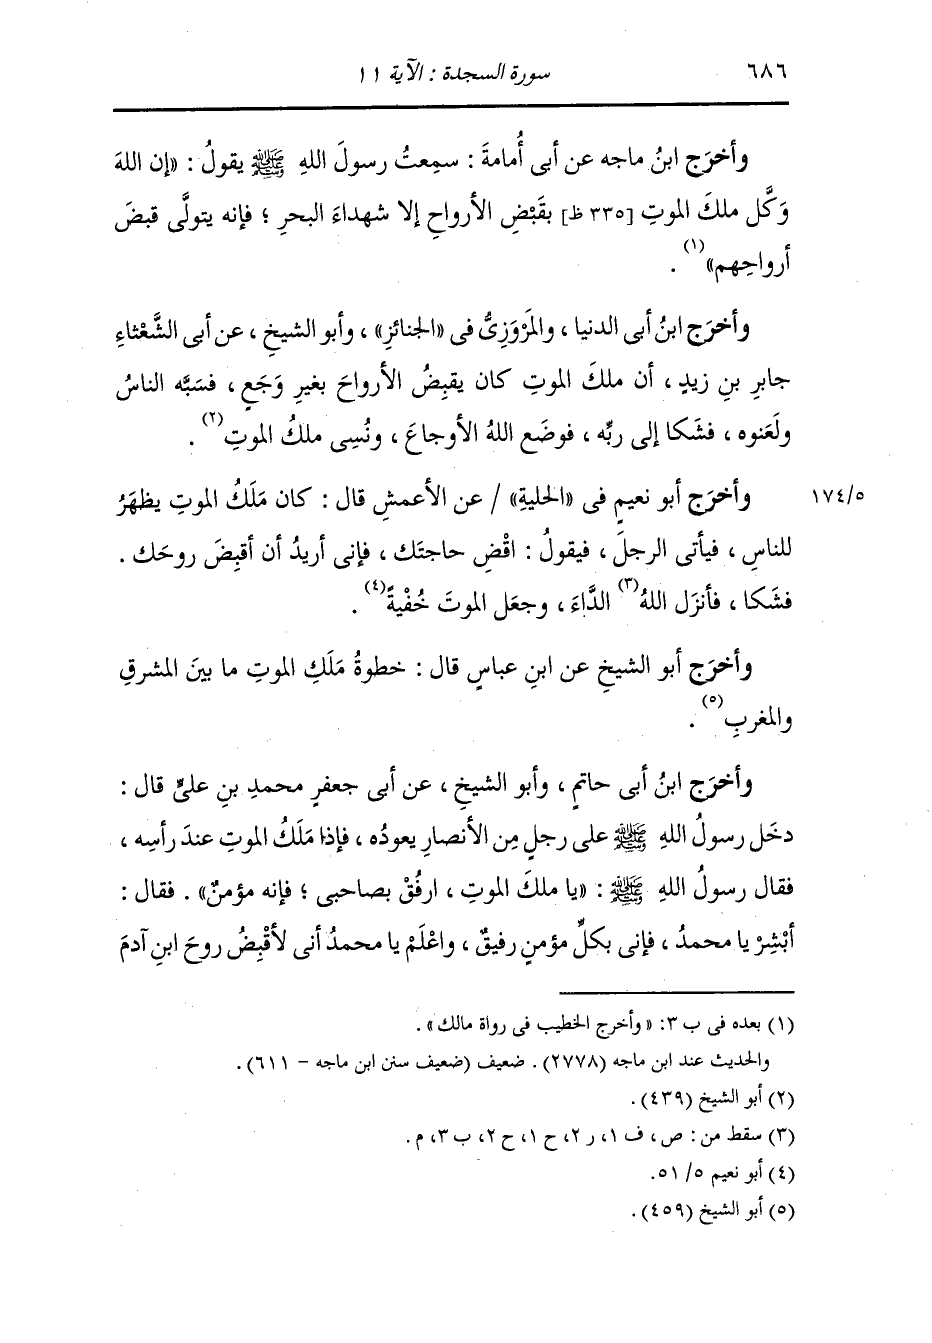 ٦٨٦ سورة السجدة : الآية ١١
وأخرَج ابنُ ماجه عن أبى أُمامةَ : سمِعتُ رسولَ اللهِ ﷺ يقولُ : «إن اللهَ
وَكَّل ملكَ الموتِ [٣٣٥ظ] بقَبْضِ الأرواحِ إلا شهداءَ البحرِ ؛ فإنه يتولَّى قبضَ
أرواحِهم»(١) .
وأخرَج ابنُ أبى الدنيا ، والمَرْوَزِىُّ فى «الجنائزِ» ، وأبو الشيخِ ، عن أبى الشَّعْثاءِ
جابرِ بنِ زيدٍ ، أن ملكَ الموتِ كان يقبِضُ الأرواحَ بغيرِ وَجَعٍ ، فسَبَّه الناسُ
ولَعَنوه ، فشَكا إلى ربِّه ، فوضَع اللهُ الأوجاعَ ، ونُسِى ملكُ الموتِ(٢) .
وأخرَج أبو نعيمٍ فى «الحليةِ» / عن الأعمشِ قال : كان مَلَكُ الموتِ يظهَرُ ١٧٤/٥
للناسِ ، فيأتى الرجلَ ، فيقولُ : اقْضِ حاجتَك ، فإنى أريدُ أن أقبِضَ روحَك .
فشَكا ، فأنزَل اللهُ(٣) الدَّاءَ ، وجعَل الموتَ خُفْيةً(٤) .
وأخرَج أبو الشيخِ عن ابنِ عباسٍ قال : خطوةُ مَلَكِ الموتِ ما بينَ المشرقِ
والمغربِ(٥) .
وأخرَج ابنُ أبى حاتمٍ ، وأبو الشيخِ ، عن أبى جعفرٍ محمدِ بنِ علىٍّ قال :
دخَل رسولُ اللهِ ﷺ على رجلٍ مِن الأنصارِ يعودُه ، فإذا مَلَكُ الموتِ عندَ رأسِه ،
فقال رسولُ اللهِ ﷺ : «يا ملكَ الموتِ ، ارفُقْ بصاحبى ؛ فإنه مؤمنٌ» . فقال :
أبْشِرْ يا محمدُ ، فإنى بكلِّ مؤمنٍ رفيقٌ ، واعْلَمْ يا محمدُ أنى لأقْبِضُ روحَ ابنِ آدمَ
(١) بعده فى ب ٣: «وأخرج الخطيب فى رواة مالك» .
والحديث عند ابن ماجه (٢٧٧٨) . ضعيف (ضعيف سنن ابن ماجه – ٦١١) .
(٢) أبو الشيخ (٤٣٩) .
(٣) سقط من : ص ، ف ١، ر ٢، ح ١، ح ٢، ب ٣، م .
(٤) أبو نعيم ٥/ ٥١.
(٥) أبو الشيخ (٤٥٩) .